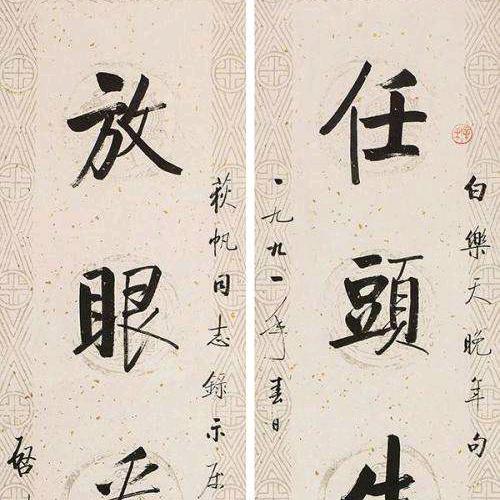 白樂天晚年句
任頭生
一九九一年春日
荻帆同志錄示屬
放眼
啓